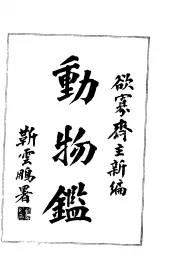 欲寡齋主新編
動物鑑
靳雲鵬署